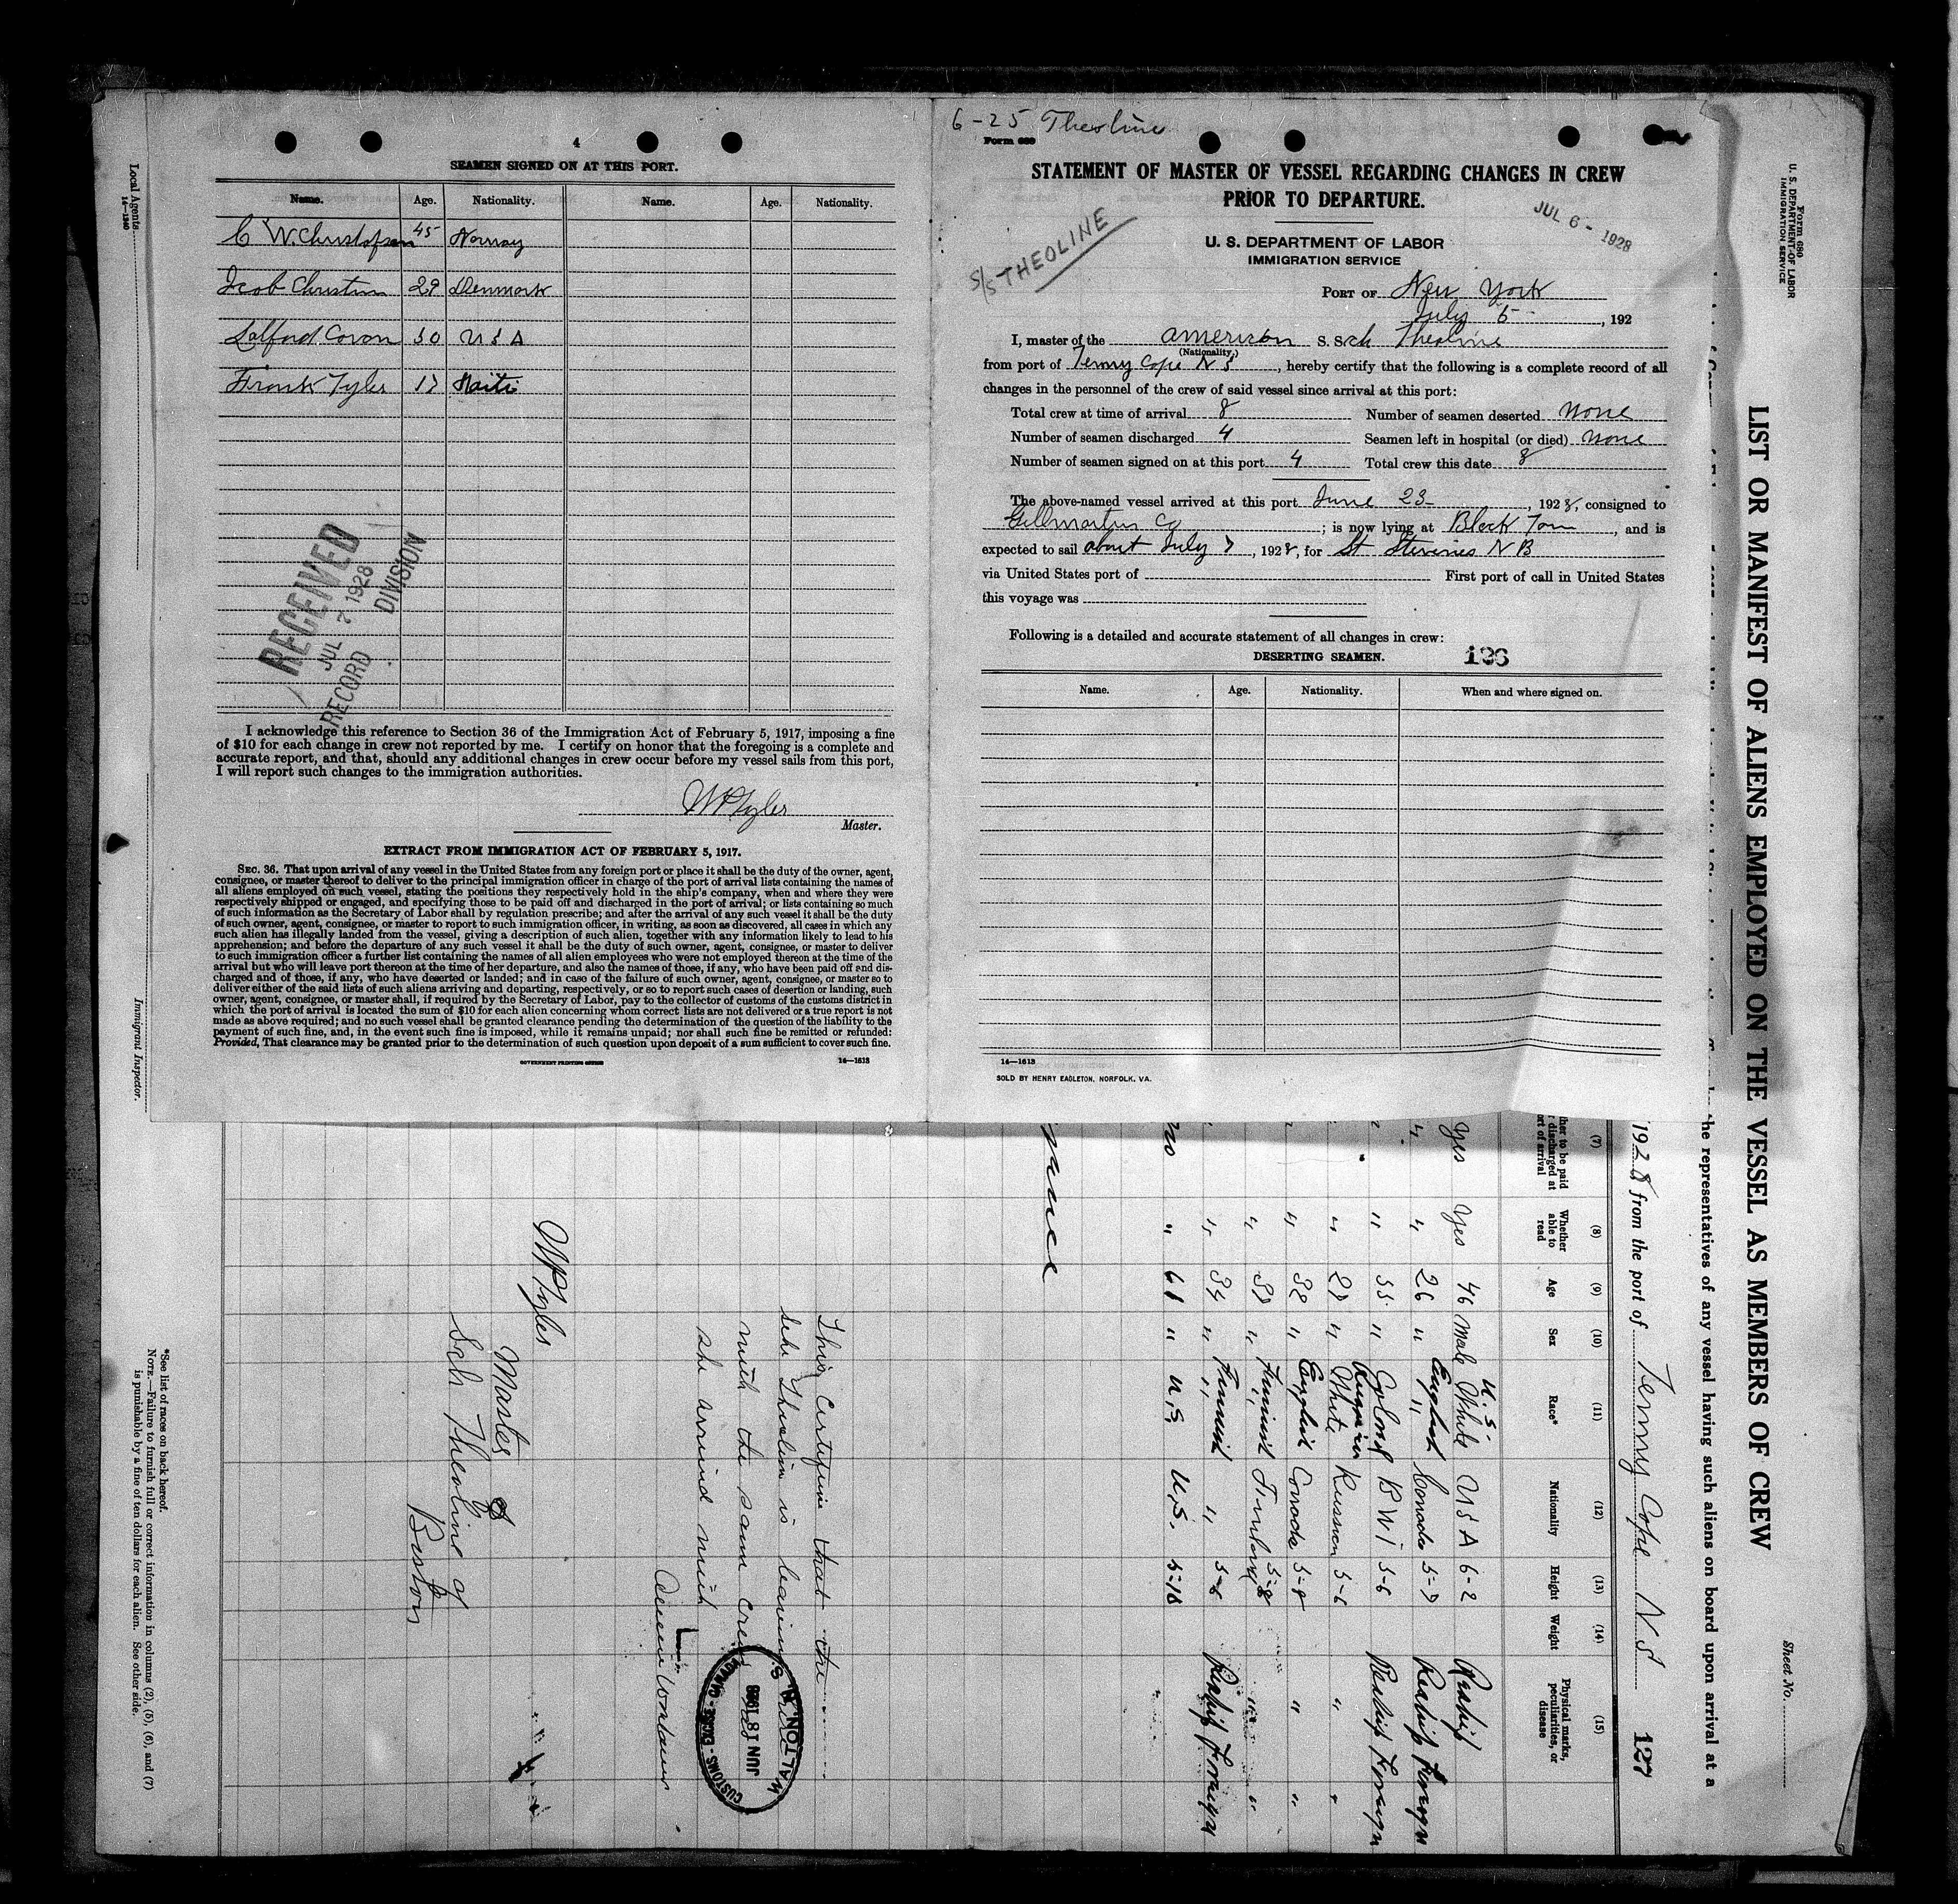 4
SEAMEN SIGNED ON AT THIS PORT.
Name. Age. Nationality. Name. Age. Nationality.
C W. Christofsen 45 Norway
Jcob Christin 29 Denmark
Covan 30 U S A
Frank Tyler 17 Haiti
RECEIVED
JUL 7 1928
RECORD DIVISION
I acknowledge this reference to Section 36 of the Immigration Act of February 5, 1917, imposing a fine
of $10 for each change in crew not reported by me. I certify on honor that the foregoing is a complete and
accurate report, and that, should any additional changes in crew occur before my vessel sails from this port,
I will report such changes to the immigration authorities.
WP Tyler
Master.
EXTRACT FROM IMMIGRATION ACT OF FEBRUARY 5, 1917.
SEC. 36. That upon arrival of any vessel in the United States from any foreign port or place it shall be the duty of the owner, agent,
consignee, or master thereof to deliver to the principal immigration officer in charge of the port of arrival lists containing the names of
all aliens employed on such vessel, stating the positions they respectively hold in the ship's company, when and where they were
respectively shipped or engaged, and specifying those to be paid off and discharged in the port of arrival; or lists containing so much
of such information as the Secretary of Labor shall by regulation prescribe; and after the arrival of any such vessel it shall be the duty
of such owner, agent, consignee, or master to report to such immigration officer, in writing, as soon as discovered, all cases in which any
such alien has illegally landed from the vessel, giving a description of such alien, together with any information likely to lead to his
apprehension; and before the departure of any such vessel it shall be the duty of such owner, agent, consignee, or master to deliver
to such immigration officer a further list containing the names of all alien employees who were not employed thereon at the time of the
arrival but who will leave port thereon at the time of her departure, and also the names of those, if any, who have been paid off and dis-
charged and of those, if any, who have deserted or landed; and in case of the failure of such owner, agent, consignee, or master so to
deliver either of the said lists of such aliens arriving and departing, respectively, or so to report such cases of desertion or landing, such
owner, agent, consignee, or master shall, if required by the Secretary of Labor, pay to the collector of customs of the customs district in
which the port of arrival is located the sum of $10 for each alien concerning whom correct lists are not delivered or a true report is not
made as above required; and no such vessel shall be granted clearance pending the determination of the question of the liability to the
payment of such fine, and, in the event such fine is imposed, while it remains unpaid; nor shall such fine be remitted or refunded:
Provided, That clearance may be granted prior to the determination of such question upon deposit of a sum sufficient to cover such fine.
GOVERNMENT PRINTING OFFICE 14—1613
6-25 Theoline
Form 689
STATEMENT OF MASTER OF VESSEL REGARDING CHANGES IN CREW
PRIOR TO DEPARTURE.
JUL 6 - 1928
S/S THEOLINE
U. S. DEPARTMENT OF LABOR
IMMIGRATION SERVICE
PORT OF New York
July 5, 192
I, master of the american S. Sch Theoline
(Nationality.)
from port of Tenny Cope N S, hereby certify that the following is a complete record of all
changes in the personnel of the crew of said vessel since arrival at this port:
Total crew at time of arrival 8 Number of seamen deserted none
Number of seamen discharged 4 Seamen left in hospital (or died) none
Number of seamen signed on at this port 4 Total crew this date 8
The above-named vessel arrived at this port June 23, 1928, consigned to
Gillmartin Co; is now lying at Black Tom, and is
expected to sail about July 7, 1928, for St Stevenes N B
via United States port of First port of call in United States
this voyage was
Following is a detailed and accurate statement of all changes in crew:
DESERTING SEAMEN. 126
Name. Age. Nationality. When and where signed on.
14—1613
SOLD BY HENRY EAGLETON, NORFOLK, VA.
Form 680
U. S. DEPARTMENT OF LABOR
IMMIGRATION SERVICE
Sheet No.
LIST OR MANIFEST OF ALIENS EMPLOYED ON THE VESSEL AS MEMBERS OF CREW
the representatives of any vessel having such aliens on board upon arrival at a
1928 from the port of Tenny Cope N S 127
(7) (8) (9) (10) (11) (12) (13) (14) (15)
Whether able to read Age Sex Race* Nationality Height Weight Physical marks, peculiarities, or disease
yes yes 46 male U.S. White U S A 6-2
" " 26 " English Canada 5-7
" " 35 " Colord B W I 5-6
" 27 " White Russian Russian 5-6
" " 32 " English Canada 5-8 "
" 37 " Finnish 5-8 "
" " 34 " Finnish " 5-6
no " 61 " U.S. U.S. 5-10
This Certifies that the
Sch Theoline is leaving
with the same crew
she arrived with
WALTON, N.S.
JUN 18 1928
CUSTOMS - EXCISE - CANADA
WP Tyler
Master of
Sch Theoline of
Boston
*See list of races on back hereof.
NOTE.—Failure to furnish full or correct information in columns (2), (5), (6), and (7)
is punishable by a fine of ten dollars for each alien. See other side.
Local Agents
14—1240
Immigrant Inspector.